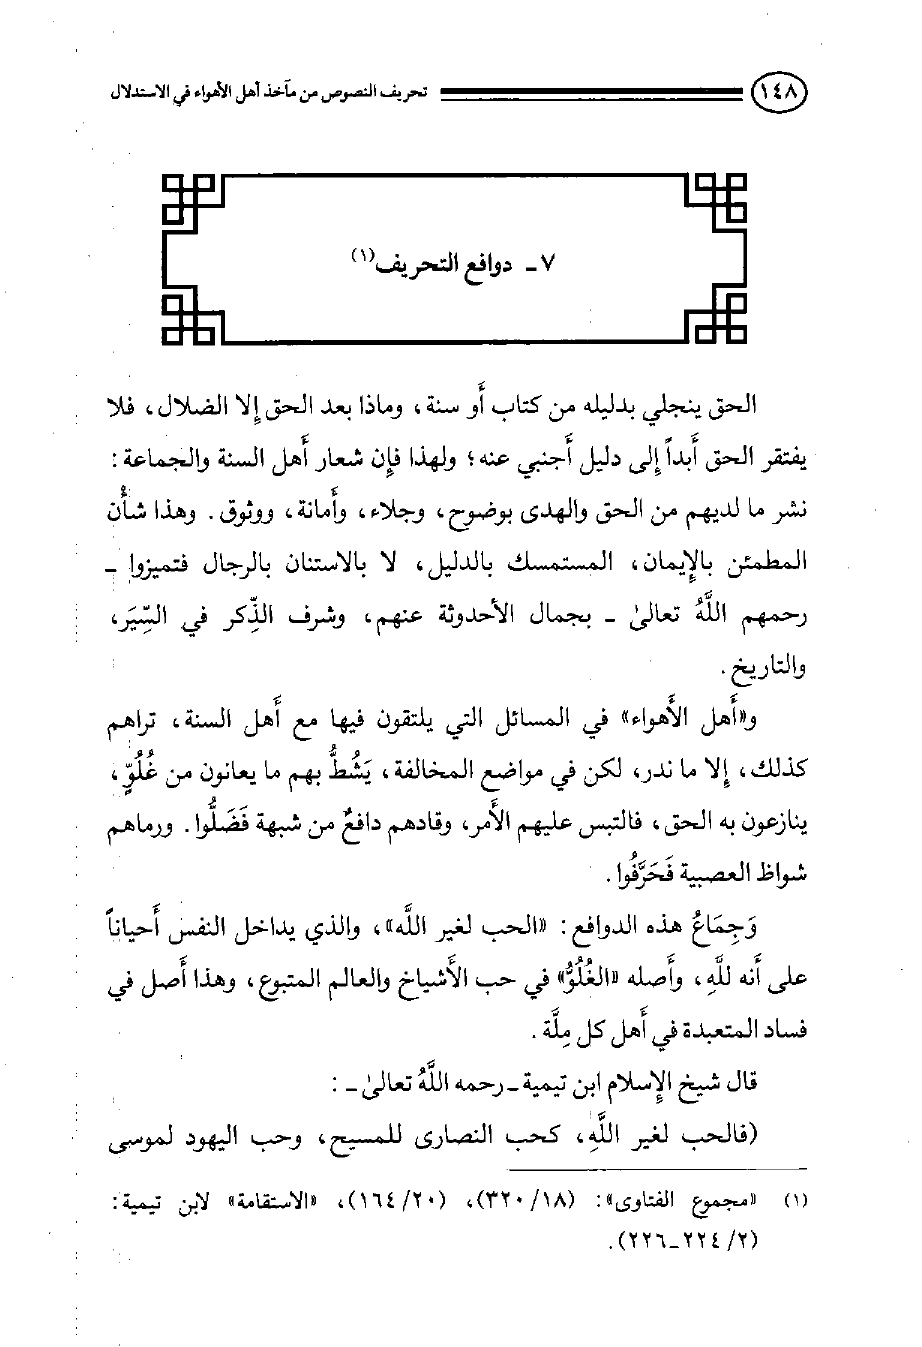 ١٤٨ تحريف النصوص من مآخذ أهل الأهواء في الاستدلال
٧ - دوافع التحريف(١)
الحق ينجلي بدليله من كتاب أو سنة، وماذا بعد الحق إلا الضلال، فلا
يفتقر الحق أبداً إلى دليل أجنبي عنه؛ ولهذا فإن شعار أهل السنة والجماعة:
نشر ما لديهم من الحق والهدى بوضوح، وجلاء، وأمانة، ووثوق. وهذا شأن
المطمئن بالإيمان، المستمسك بالدليل، لا بالاستنان بالرجال فتميزوا -
رحمهم اللَّهُ تعالىٰ - بجمال الأحدوثة عنهم، وشرف الذِّكر في السِّيَر،
والتاريخ.
و«أهل الأهواء» في المسائل التي يلتقون فيها مع أهل السنة، تراهم
كذلك، إلا ما ندر، لكن في مواضع المخالفة، يَشُطُّ بهم ما يعانون من غُلُوٍّ،
ينازعون به الحق، فالتبس عليهم الأمر، وقادهم دافعٌ من شبهة فَضَلُّوا. ورماهم
شواظ العصبية فَحَرَّفُوا.
وَجِمَاعُ هذه الدوافع: «الحب لغير اللَّه»، والذي يداخل النفس أحياناً
على أنه للَّهِ، وأصله «الغُلُوُّ» في حب الأشياخ والعالم المتبوع، وهذا أصل في
فساد المتعبدة في أهل كل مِلَّة.
قال شيخ الإسلام ابن تيمية - رحمه اللَّهُ تعالىٰ -:
(فالحب لغير اللَّهِ، كحب النصارى للمسيح، وحب اليهود لموسى
(١) «مجموع الفتاوى»: (١٨/ ٣٢٠)، (٢٠/ ١٦٤)، «الاستقامة» لابن تيمية:
(٢/ ٢٢٤-٢٢٦).